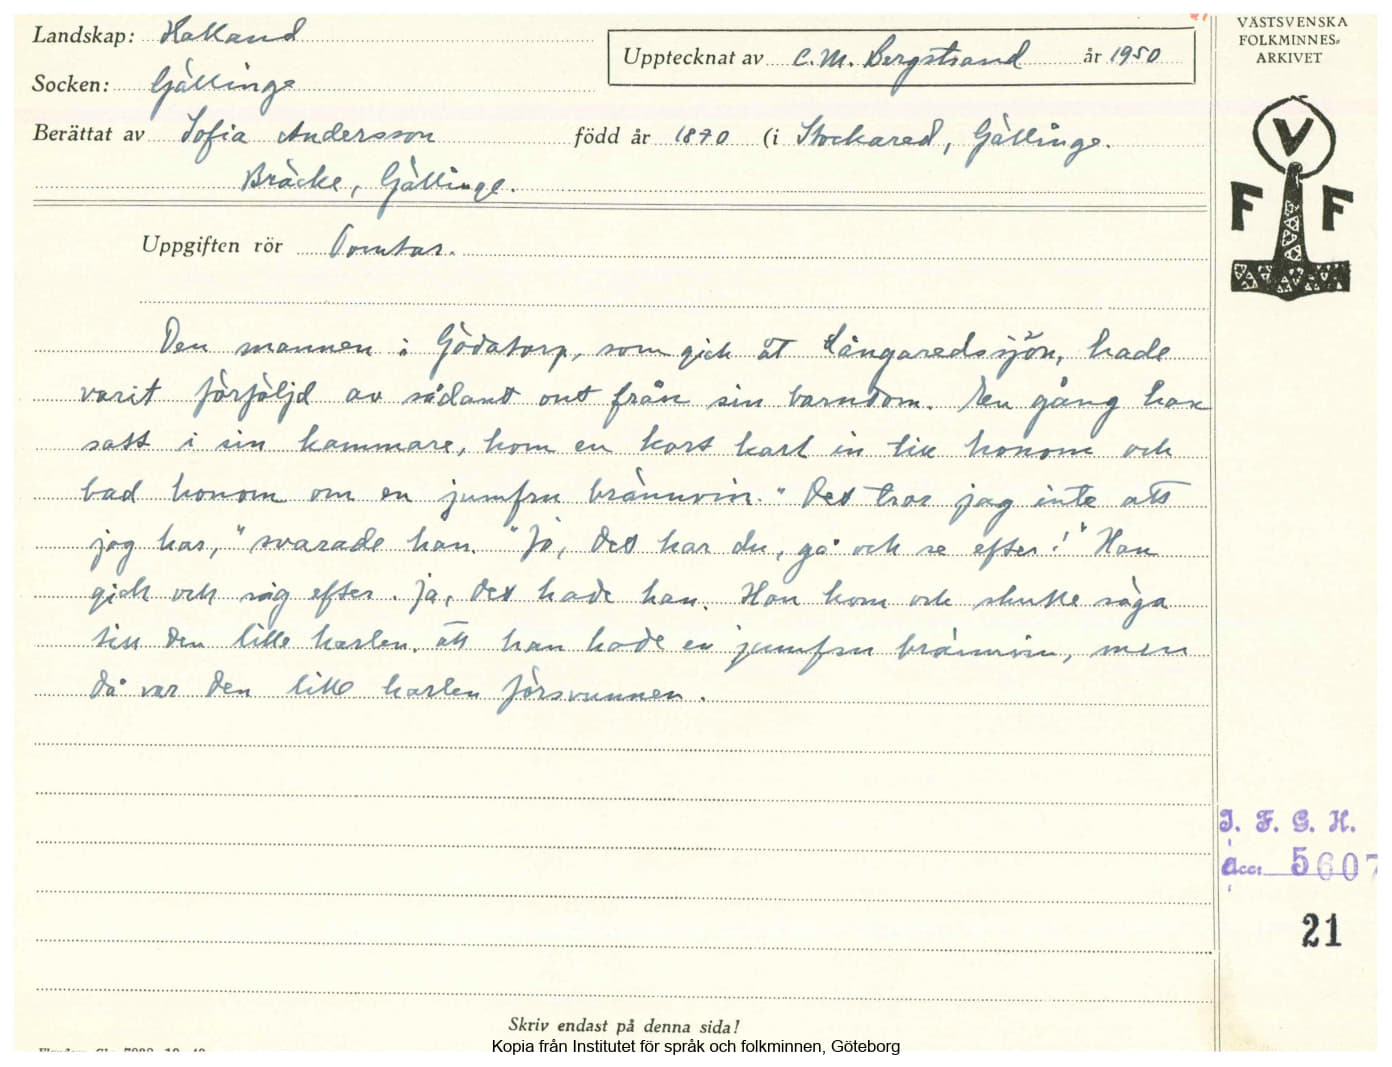 Landskap: Halland
Socken: Gällinge
Upptecknat av C. M. Bergstrand år 1950
Berättat av Sofia Andersson född år 1870 (i Stockared, Gällinge.
Bräcke, Gällinge.
Uppgiften rör Tomtar.
Den mannen i Gödatorp, som gick åt Långaredsjön, hade
varit förföljd av sådant ont från sin barndom. En gång han
satt i sin kammare, kom en kort karl in till honom och
bad honom om en jumfru brännvin. "Det tror jag inte att
jag har," svarade han. "Jo, det har du, gå och se efter!" Han
gick och såg efter. Ja, det hade han. Han kom och skulle säga
till den lille karlen, att han hade en jumfru brännvin, men
då var den lille karlen försvunnen.
Skriv endast på denna sida!
Kopia från Institutet för språk och folkminnen, Göteborg
VÄSTSVENSKA
FOLKMINNES-
ARKIVET
V
F F
I. F. G. H.
Acc: 5607
21